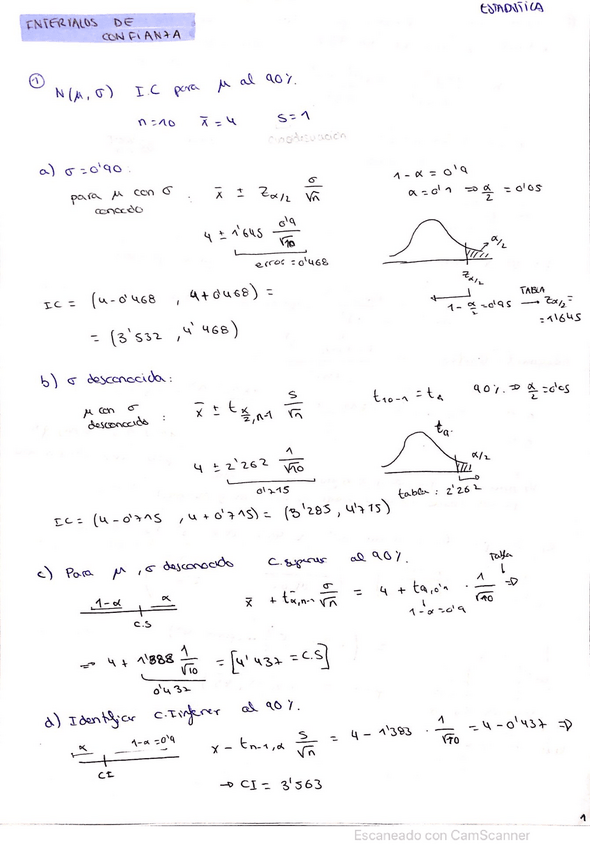 ESTADISTICA
INTERVALOS DE
CONFIANZA
① N(μ, σ) I.C para μ al 90%.
n=10 x̄=4 S=1
a) σ=0'90:
para μ con σ conocido : x̄ ± Zα/2 σ/√n
1-α = 0'9
α=0'1 ⇒ α/2 = 0'05
4 ± 1'645 0'9/√10
error = 0'468
α/2
Zα/2
1-α/2=0'95 → TABLA Zα/2= =1'645
IC = (4-0'468 , 4+0'468) =
= (3'532 , 4'468)
b) σ desconocida:
μ con σ desconocido : x̄ ± tα/2,n-1 S/√n
t10-1 = t9 90% ⇒ α/2=0'05
4 ± 2'262 1/√10
0'715
t9
α/2
tabla: 2'262
IC = (4-0'715 , 4+0'715) = (3'285, 4'715)
c) Para μ, σ desconocido C.superior al 90%.
1-α α
C.S
x̄ + tα,n-1 σ/√n = 4 + t9,0'1 · 1/√10 ⇒
Tabla
1-α=0'9
⇒ 4 + 1'383 1/√10 = [4'437 = C.S]
0'437
d) Identificar C.Inferior al 90%.
α 1-α=0'9
CI
x - tn-1,α S/√n = 4 - 1'383 · 1/√10 = 4-0'437 ⇒
→ CI = 3'563
1
Escaneado con CamScanner